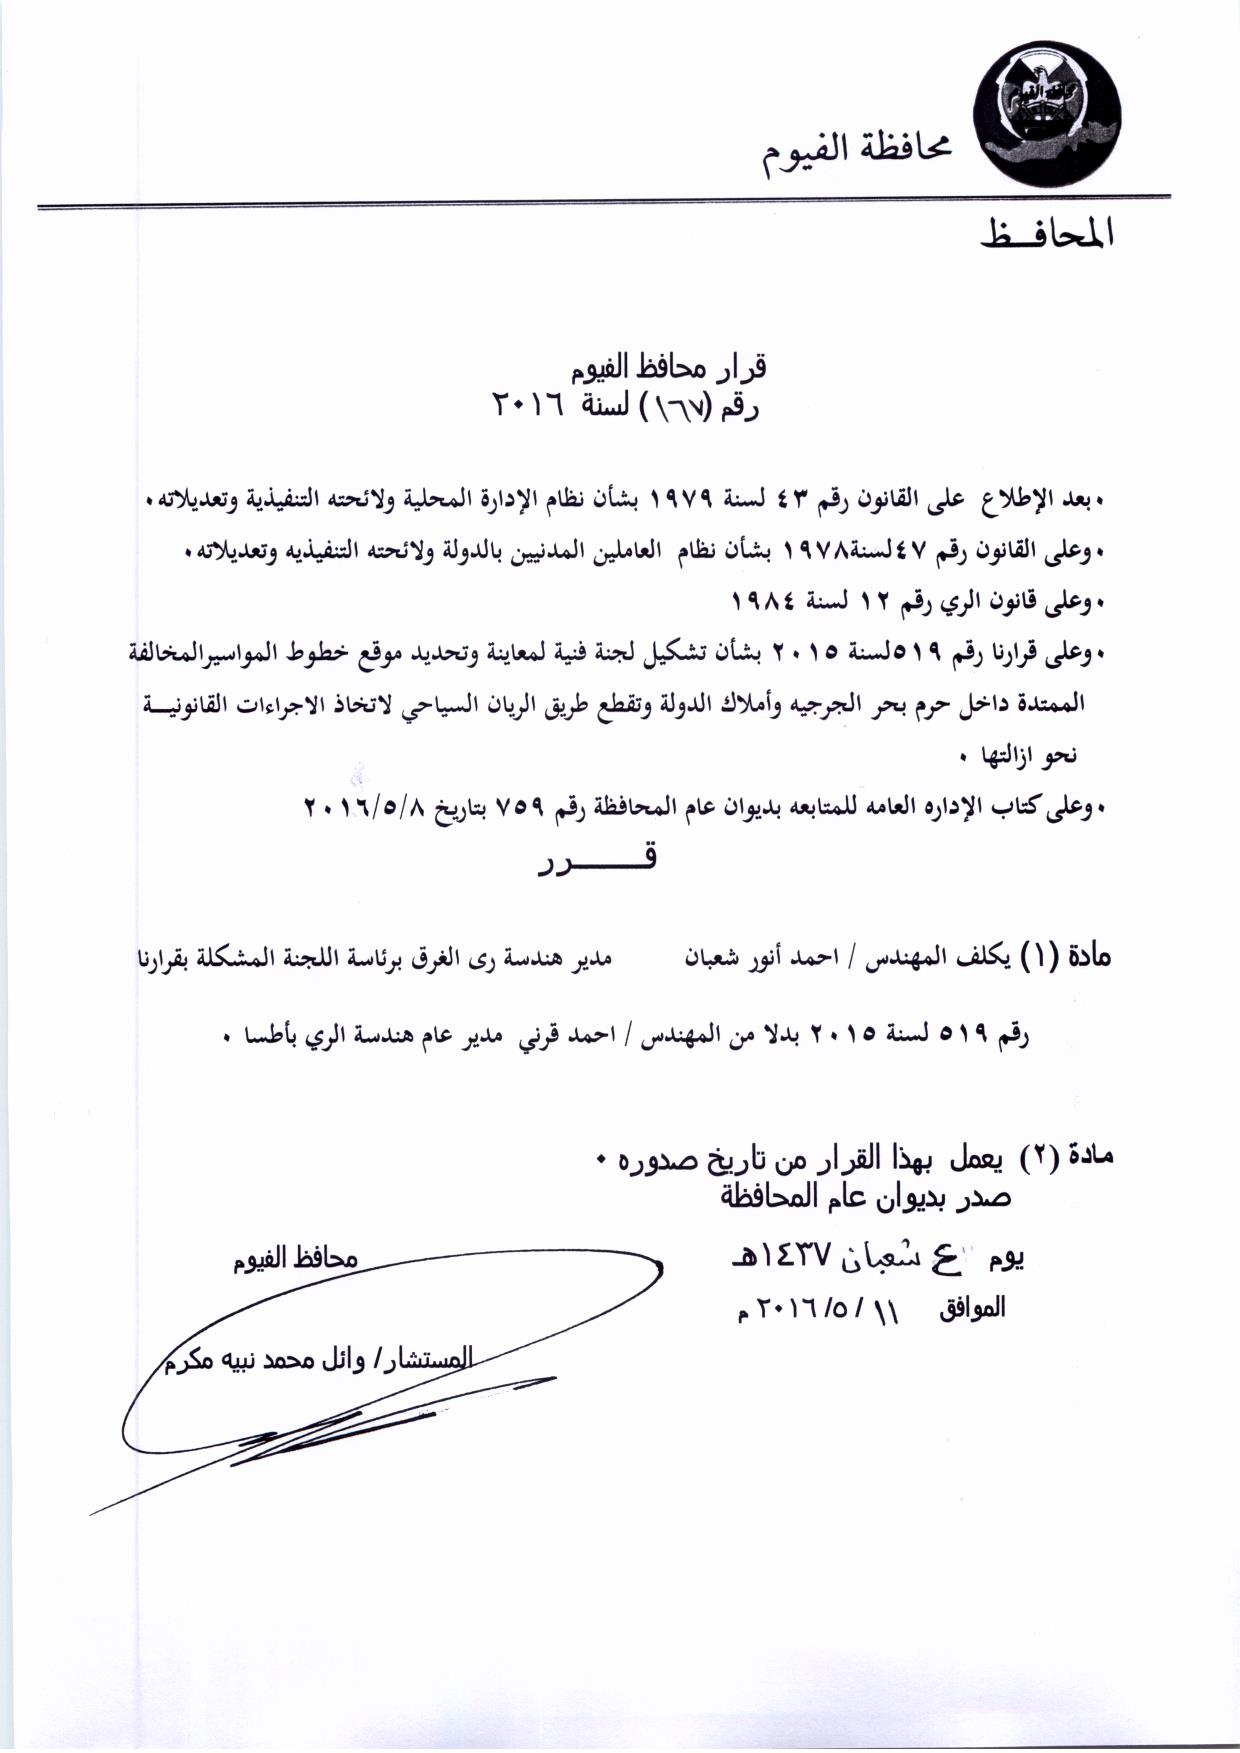 محافظة الفيوم
محافظة الفيوم
المحافــظ
قرار محافظ الفيوم
رقم (١٦٧) لسنة ٢٠١٦
٠بعد الإطلاع على القانون رقم ٤٣ لسنة ١٩٧٩ بشأن نظام الإدارة المحلية ولائحته التنفيذية وتعديلاته٠
٠وعلى القانون رقم ٤٧لسنة١٩٧٨ بشأن نظام العاملين المدنيين بالدولة ولائحته التنفيذيه وتعديلاته٠
٠وعلى قانون الري رقم ١٢ لسنة ١٩٨٤
٠وعلى قرارنا رقم ٥١٩لسنة ٢٠١٥ بشأن تشكيل لجنة فنية لمعاينة وتحديد موقع خطوط المواسيرالمخالفة
الممتدة داخل حرم بحر الجرجيه وأملاك الدولة وتقطع طريق الريان السياحي لاتخاذ الاجراءات القانونيــة
نحو ازالتها ٠
٠وعلى كتاب الإداره العامه للمتابعه بديوان عام المحافظة رقم ٧٥٩ بتاريخ ٢٠١٦/٥/٨
قــــــرر
مادة (١) يكلف المهندس / احمد أنور شعبان مدير هندسة رى الغرق برئاسة اللجنة المشكلة بقرارنا
رقم ٥١٩ لسنة ٢٠١٥ بدلا من المهندس / احمد قرني مدير عام هندسة الري بأطسا ٠
مادة (٢) يعمل بهذا القرار من تاريخ صدوره ٠
صدر بديوان عام المحافظة
يوم ٤ شعبان ١٤٣٧هـ
الموافق ١١ / ٥/ ٢٠١٦ م
محافظ الفيوم
المستشار/ وائل محمد نبيه مكرم